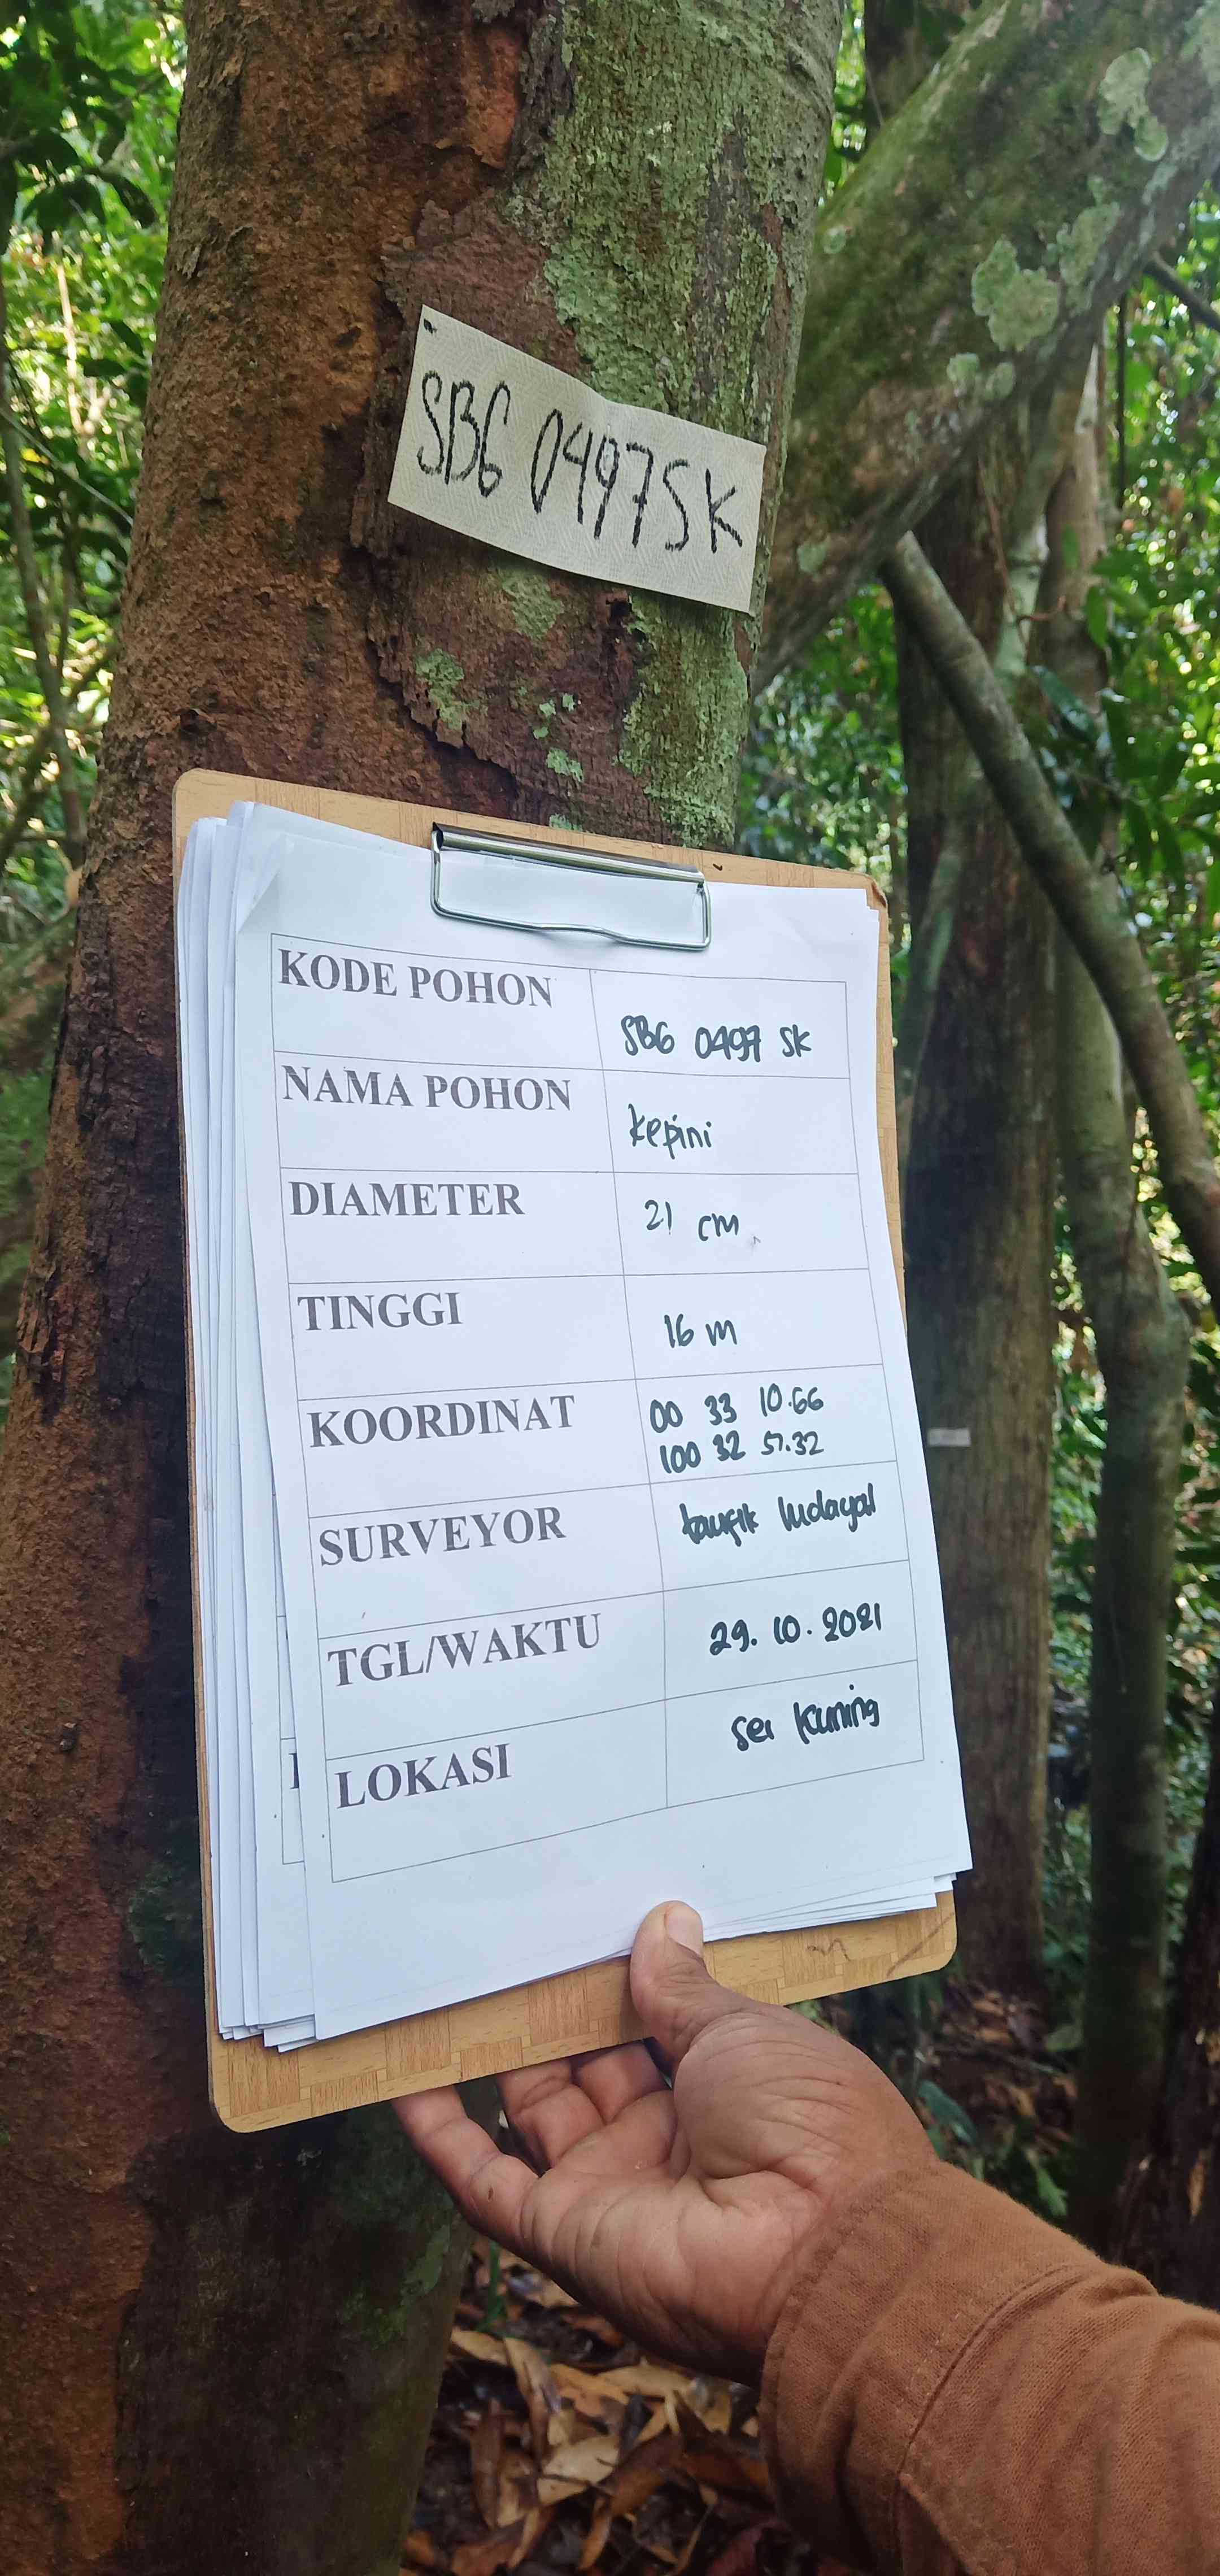 SBG 0497 SK
KODE POHON
SBG 0497 SK
NAMA POHON
kepini
DIAMETER
21 cm
TINGGI
16 m
KOORDINAT
00 33 10.66
100 32 57.32
SURVEYOR
taufik hidayat
TGL/WAKTU
29. 10. 2021
LOKASI
sei kuning